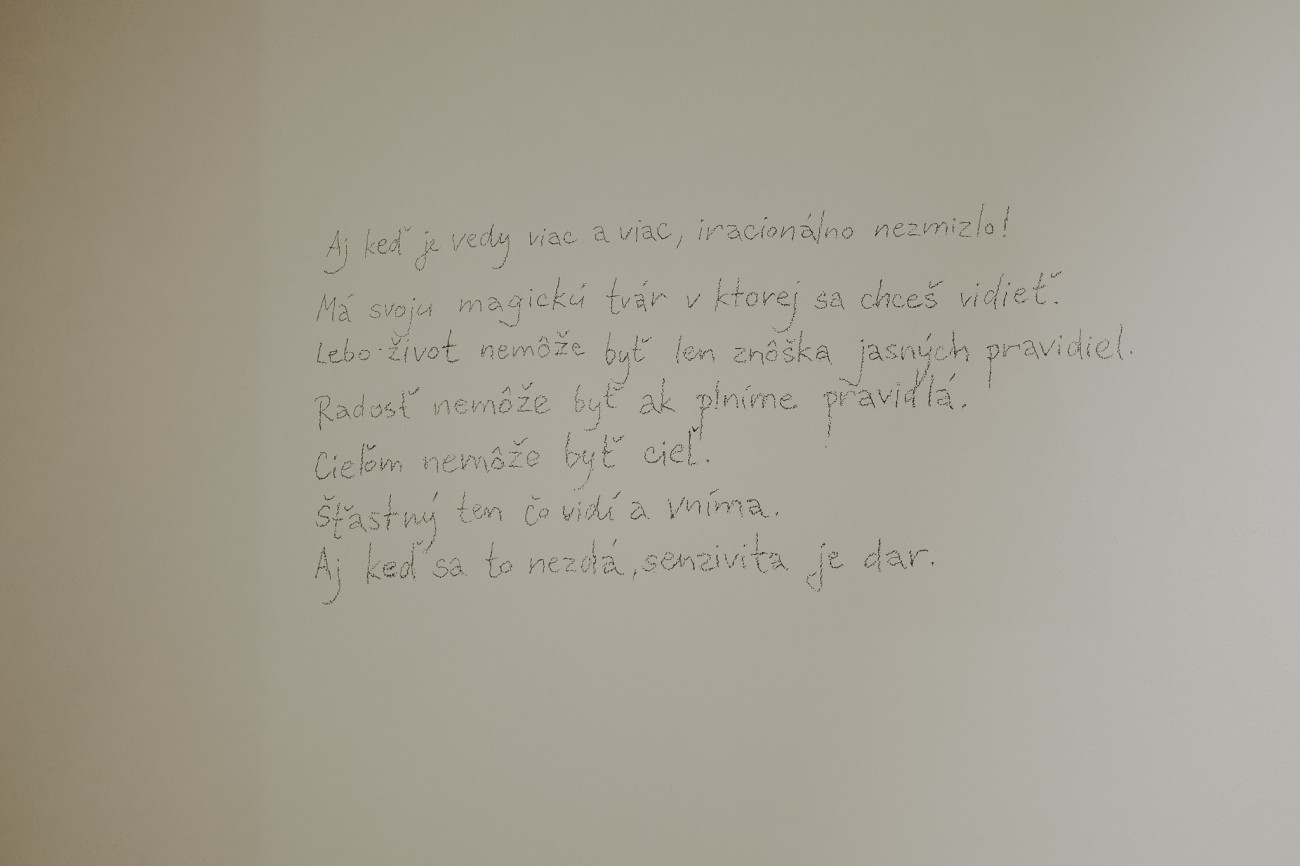 Aj keď je vedy viac a viac, iracionálno nezmizlo!
Má svoju magickú tvár v ktorej sa chceš vidieť.
Lebo život nemôže byť len znôška jasných pravidiel.
Radosť nemôže byť ak plníme pravidlá.
Cieľom nemôže byť cieľ.
Šťastný ten čo vidí a vníma.
Aj keď sa to nezdá, senzivita je dar.